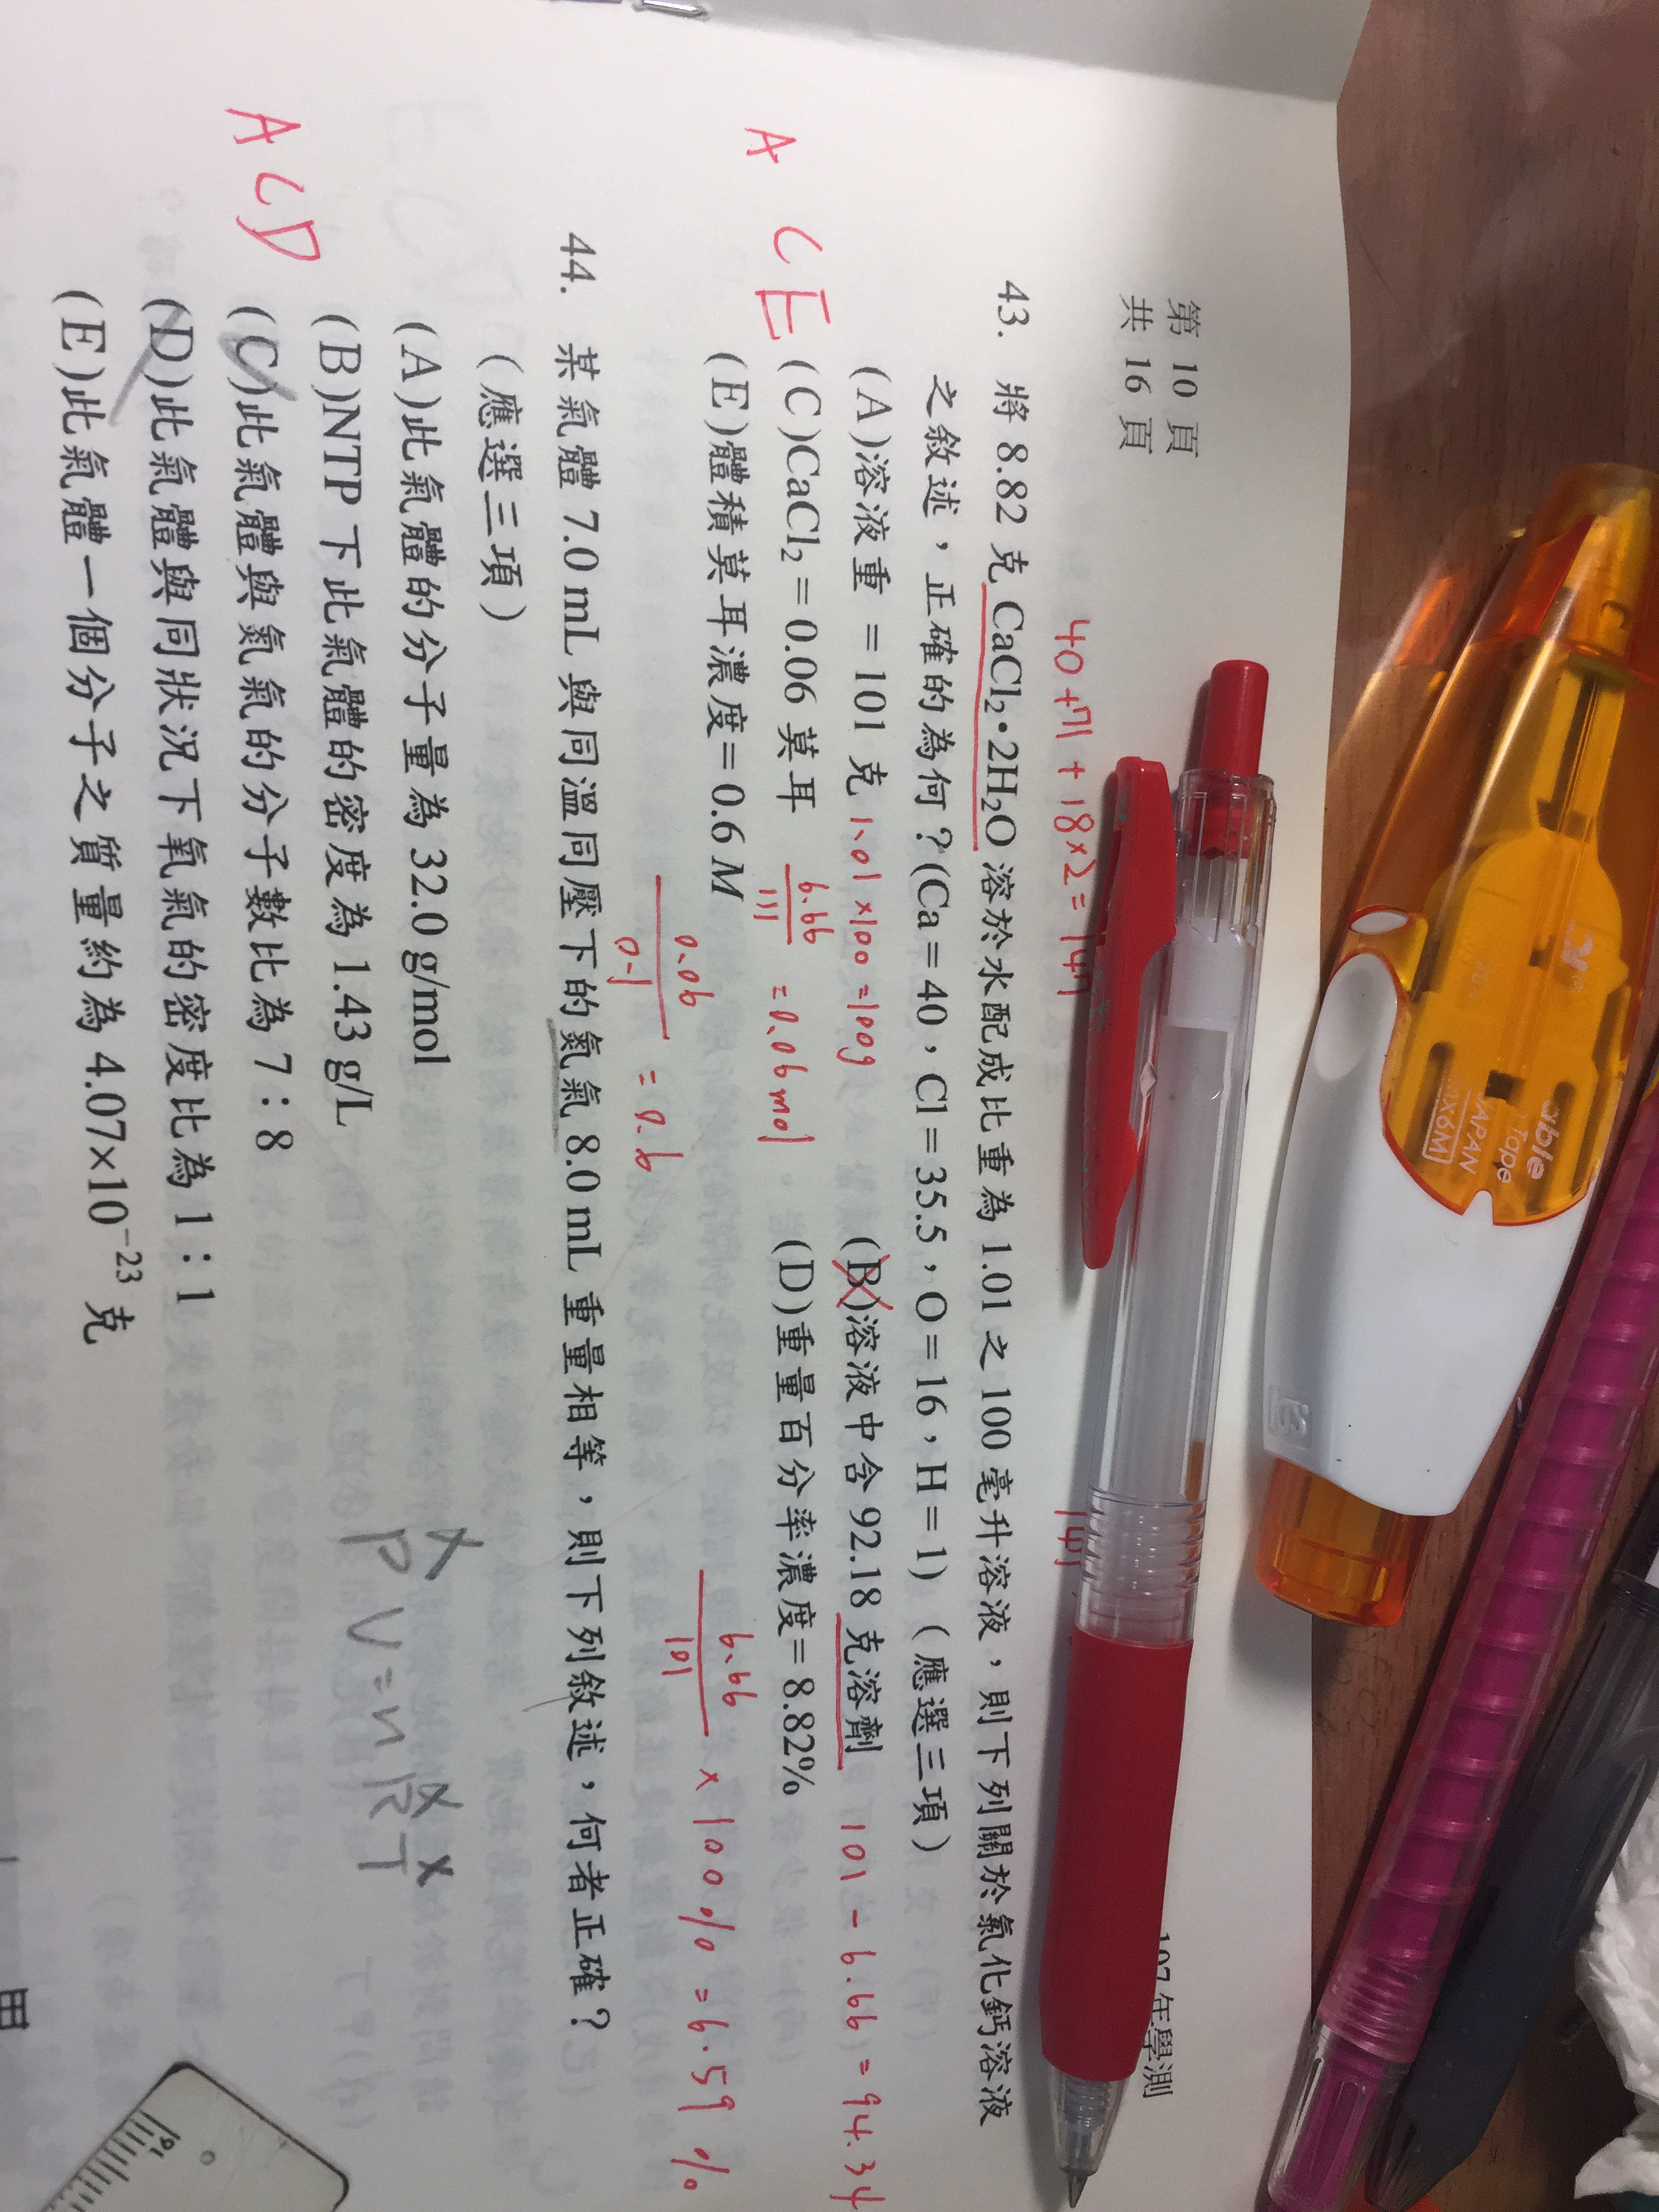 第 10 頁
共 16 頁
107 年學測
40+71+18×2=147
147
43. 將 8.82 克 CaCl₂•2H₂O 溶於水配成比重為 1.01 之 100 毫升溶液,則下列關於氯化鈣溶液
之敘述,正確的為何?(Ca=40,Cl=35.5,O=16,H=1)(應選三項)
(A)溶液重=101 克 1.01×100=100g (B)溶液中含 92.18 克溶劑 101-6.66=94.34
A C E
(C)CaCl₂=0.06 莫耳 6.66/111 =0.06mol (D)重量百分率濃度=8.82% 6.66/101 ×100%=6.59%
(E)體積莫耳濃度=0.6 M 0.06/0.1 =0.6
44. 某氣體 7.0 mL 與同溫同壓下的氮氣 8.0 mL 重量相等,則下列敘述,何者正確?
(應選三項)
(A)此氣體的分子量為 32.0 g/mol
(B)NTP 下此氣體的密度為 1.43 g/L
PV=nRT
A C D
(C)此氣體與氮氣的分子數比為 7:8
(D)此氣體與同狀況下氧氣的密度比為 1:1
(E)此氣體一個分子之質量約為 4.07×10⁻²³ 克
able
Tape
JAPAN